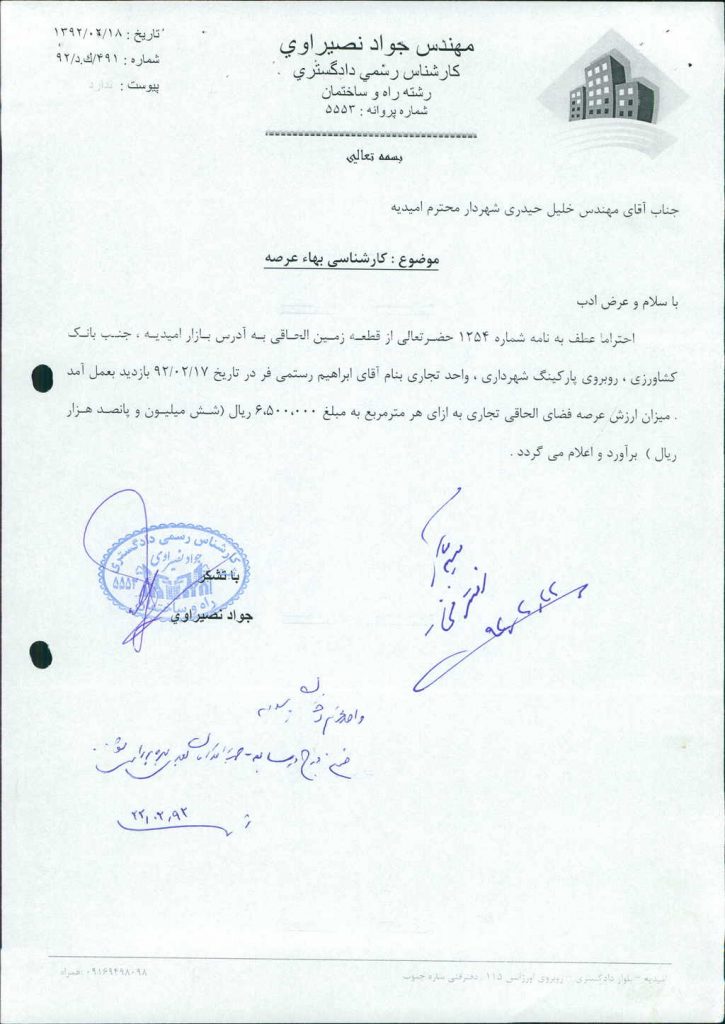 تاریخ : ۱۳۹۲/۰۲/۱۸
شماره : ۴۹۱/ك.د/۹۲
پیوست : ندارد
مهندس جواد نصيراوي
كارشناس رسمي دادگستري
رشته راه و ساختمان
شماره پروانه : ۵۵۵۳
بسمه تعالی
جناب آقای مهندس خلیل حیدری شهردار محترم امیدیه
موضوع : کارشناسی بهاء عرصه
با سلام و عرض ادب
احتراما عطف به نامه شماره ۱۲۵۴ حضرتعالی از قطعه زمین الحاقی به آدرس بازار امیدیه ، جنب بانک
کشاورزی ، روبروی پارکینگ شهرداری ، واحد تجاری بنام آقای ابراهیم رستمی فر در تاریخ ۹۲/۰۲/۱۷ بازدید بعمل آمد
. میزان ارزش عرصه فضای الحاقی تجاری به ازای هر مترمربع به مبلغ ۶،۵۰۰،۰۰۰ ریال (شش میلیون و پانصد هزار
ریال ) برآورد و اعلام می گردد .
کارشناس رسمی دادگستری
جواد نصیراوی
۵۵۵۳
راه و ساختمان
با تشکر
جواد نصيراوي
۹۲,۲,۲۲
۲۲,۰۲,۹۲
امیدیه - بلوار دادگستری - روبروی اورژانس ۱۱۵ ، دفترفنی سازه جنوب
همراه: ۰۹۱۶۹۴۹۸۰۹۸